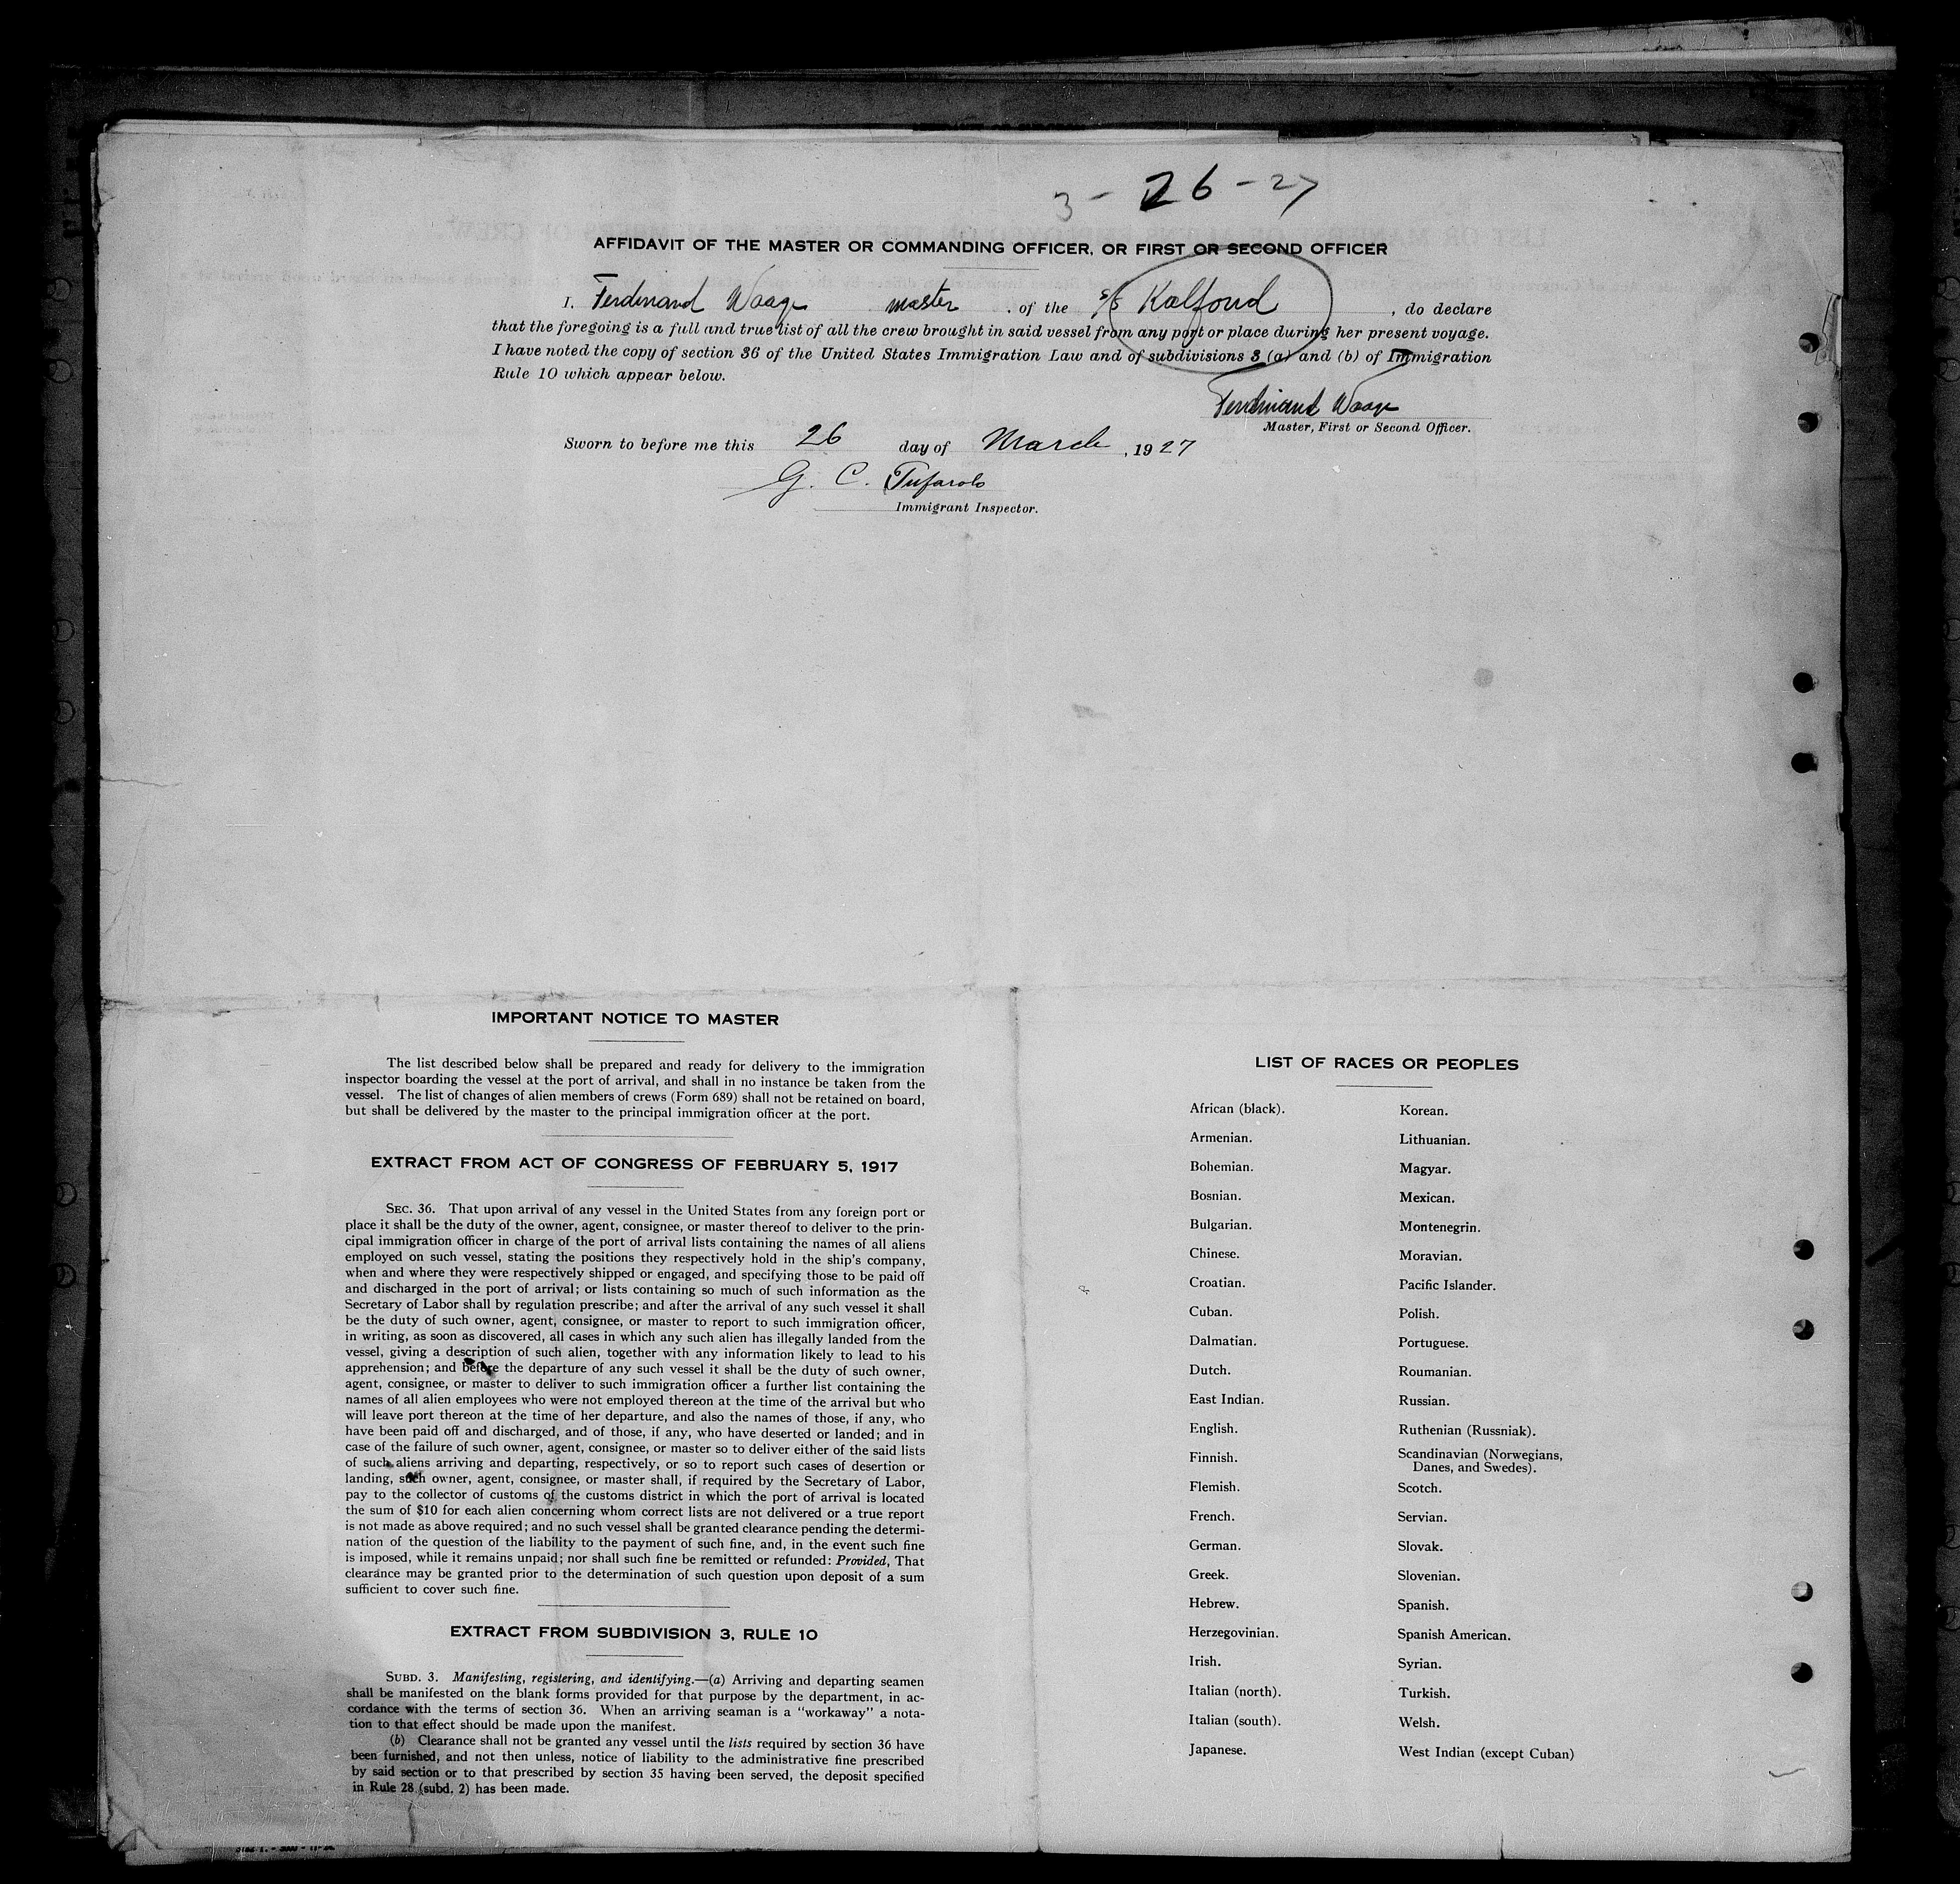 3 - 26 - 27
AFFIDAVIT OF THE MASTER OR COMMANDING OFFICER, OR FIRST OR SECOND OFFICER
I, Ferdinand Waage master, of the s/s Kalfond, do declare
that the foregoing is a full and true list of all the crew brought in said vessel from any port or place during her present voyage.
I have noted the copy of section 36 of the United States Immigration Law and of subdivisions 3 (a) and (b) of Immigration
Rule 10 which appear below.
Ferdinand Waage
Master, First or Second Officer.
Sworn to before me this 26 day of March, 1927
G. C. Tufarolo
Immigrant Inspector.
IMPORTANT NOTICE TO MASTER
The list described below shall be prepared and ready for delivery to the immigration
inspector boarding the vessel at the port of arrival, and shall in no instance be taken from the
vessel. The list of changes of alien members of crews (Form 689) shall not be retained on board,
but shall be delivered by the master to the principal immigration officer at the port.
EXTRACT FROM ACT OF CONGRESS OF FEBRUARY 5, 1917
SEC. 36. That upon arrival of any vessel in the United States from any foreign port or
place it shall be the duty of the owner, agent, consignee, or master thereof to deliver to the prin-
cipal immigration officer in charge of the port of arrival lists containing the names of all aliens
employed on such vessel, stating the positions they respectively hold in the ship's company,
when and where they were respectively shipped or engaged, and specifying those to be paid off
and discharged in the port of arrival; or lists containing so much of such information as the
Secretary of Labor shall by regulation prescribe; and after the arrival of any such vessel it shall
be the duty of such owner, agent, consignee, or master to report to such immigration officer,
in writing, as soon as discovered, all cases in which any such alien has illegally landed from the
vessel, giving a description of such alien, together with any information likely to lead to his
apprehension; and before the departure of any such vessel it shall be the duty of such owner,
agent, consignee, or master to deliver to such immigration officer a further list containing the
names of all alien employees who were not employed thereon at the time of the arrival but who
will leave port thereon at the time of her departure, and also the names of those, if any, who
have been paid off and discharged, and of those, if any, who have deserted or landed; and in
case of the failure of such owner, agent, consignee, or master so to deliver either of the said lists
of such aliens arriving and departing, respectively, or so to report such cases of desertion or
landing, such owner, agent, consignee, or master shall, if required by the Secretary of Labor,
pay to the collector of customs of the customs district in which the port of arrival is located
the sum of $10 for each alien concerning whom correct lists are not delivered or a true report
is not made as above required; and no such vessel shall be granted clearance pending the determi-
nation of the question of the liability to the payment of such fine, and, in the event such fine
is imposed, while it remains unpaid; nor shall such fine be remitted or refunded: Provided, That
clearance may be granted prior to the determination of such question upon deposit of a sum
sufficient to cover such fine.
EXTRACT FROM SUBDIVISION 3, RULE 10
SUBD. 3. Manifesting, registering, and identifying.—(a) Arriving and departing seamen
shall be manifested on the blank forms provided for that purpose by the department, in ac-
cordance with the terms of section 36. When an arriving seaman is a "workaway" a nota-
tion to that effect should be made upon the manifest.
(b) Clearance shall not be granted any vessel until the lists required by section 36 have
been furnished, and not then unless, notice of liability to the administrative fine prescribed
by said section or to that prescribed by section 35 having been served, the deposit specified
in Rule 28 (subd. 2) has been made.
LIST OF RACES OR PEOPLES
African (black).
Armenian.
Bohemian.
Bosnian.
Bulgarian.
Chinese.
Croatian.
Cuban.
Dalmatian.
Dutch.
East Indian.
English.
Finnish.
Flemish.
French.
German.
Greek.
Hebrew.
Herzegovinian.
Irish.
Italian (north).
Italian (south).
Japanese.
Korean.
Lithuanian.
Magyar.
Mexican.
Montenegrin.
Moravian.
Pacific Islander.
Polish.
Portuguese.
Roumanian.
Russian.
Ruthenian (Russniak).
Scandinavian (Norwegians,
Danes, and Swedes).
Scotch.
Servian.
Slovak.
Slovenian.
Spanish.
Spanish American.
Syrian.
Turkish.
Welsh.
West Indian (except Cuban)